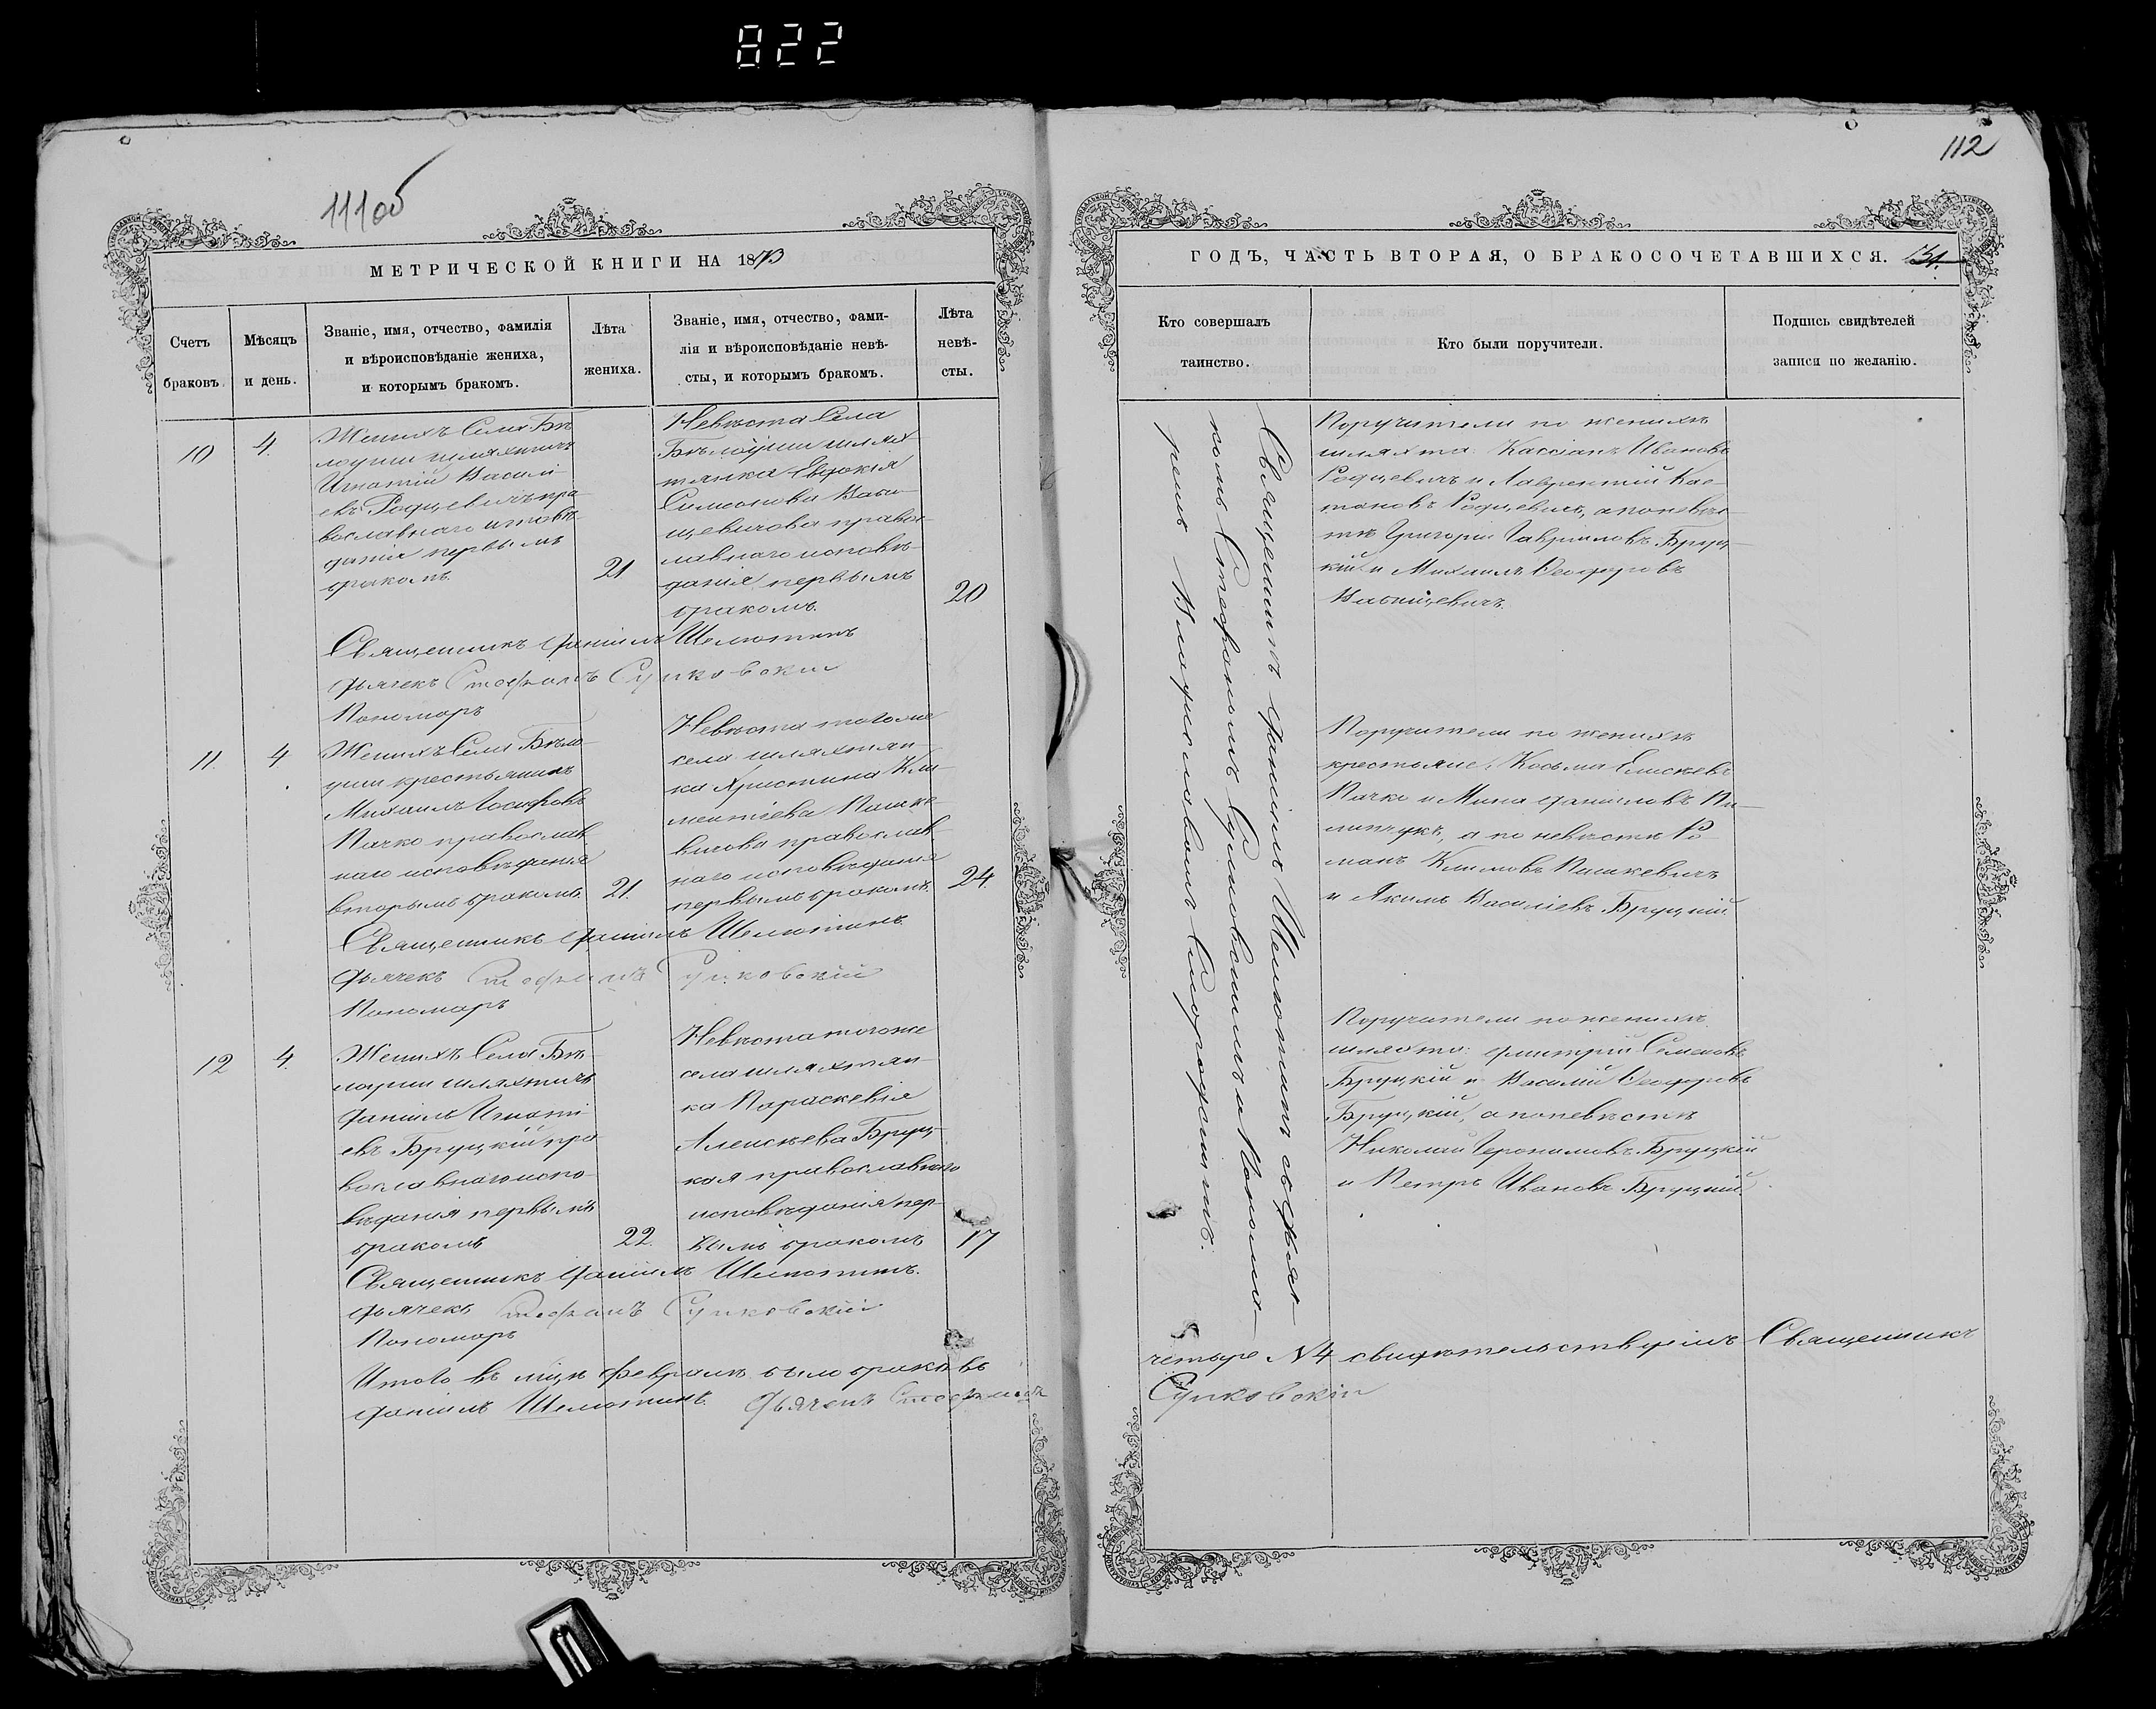 822
111об
МЕТРИЧЕСКОЙ КНИГИ НА 1873
Счетъ браковъ.
Мѣсяцъ и день.
Званіе, имя, отчество, фамилія
и вѣроисповѣданіе жениха,
и которымъ бракомъ.
Лѣта
жениха.
Званіе, имя, отчество, фами-
лія и вѣроисповѣданіе невѣ-
сты, и которымъ бракомъ.
Лѣта
невѣ-
сты.
10
4.
Женихъ Села Бѣ-
лоуши шляхтичъ
Игнатій Васили-
евъ Родцевичъ пра-
вославнаго исповѣ-
данія первымъ
бракомъ.
21
Невѣста Села
Бѣлоуши шлях-
тянка Евдокія
Симеонова
щевичова правос-
лавнаго исповѣ-
данія первымъ
бракомъ.
20
Священникъ Даніилъ Шелютинъ
Дьячекъ Стефанъ Сулковскій
Пономарь
11
4
Женихъ Села Бѣло-
уши крестьянинъ
Михаилъ Іосифовъ
Пачко православ-
наго исповѣданія
вторымъ бракомъ.
21.
Невѣста того же
села шляхтян-
ка Христина Кли-
ментіева Пашке-
вичова православ-
наго исповѣданія
первымъ бракомъ.
24.
Священникъ Даніилъ Шелютинъ.
Дьячекъ Стефанъ Сулковскій
Пономарь
12
4.
Женихъ Села Бѣ-
лоуши шляхтичъ
Даніилъ Игнаті-
евъ Бруцкій пра-
вославнаго испо-
вѣданія первымъ
бракомъ
22.
Невѣста тогоже
села шляхтян-
ка Параскевія
Алексѣева Бруц-
кая православнаго
исповѣданія пер-
вымъ бракомъ
17
Священникъ Даніилъ Шелютинъ.
Дьячекъ Стефанъ Сулковскій
Пономарь
Итого въ м-цѣ Февралѣ было браковъ
Даніилъ Шелютинъ. Дьячекъ Стефанъ
112
ГОДЪ, ЧАСТЬ ВТОРАЯ, О БРАКОСОЧЕТАВШИХСЯ. 131.
Кто совершалъ
таинство.
Кто были поручители.
Подпись свидѣтелей
записи по желанію.
Священникъ Даніилъ Шелютинъ съ Дьяч-
комъ Стефаномъ Сулковскимъ и Понома-
ремъ Владиславомъ
Поручители по женихѣ
шляхта: Кассіанъ Ивановъ
Родцевичъ и Лаврентій Кае-
тановъ Родцевичъ, а по невѣс-
тѣ Григорій Гавриловъ Бруц-
кій и Михаилъ Ѳеодоровъ
Поручители по женихѣ
крестьяне: Козьма Елисѣевъ
Пачко и Мина Даніиловъ Пи-
липчукъ, а по невѣстѣ Ро-
манъ Климовъ Пашкевичъ
и Якимъ Василіевъ Бруцкій
Поручители по женихѣ
шляхта: Димитрій Семеновъ
Бруцкій и Василій Ѳеодоровъ
Бруцкій, а по невѣстѣ
Николай Іеронимовъ Бруцкій
и Петръ Ивановъ Бруцкій.
четыре N4 свидѣтельствуемъ Священникъ
Сулковскій